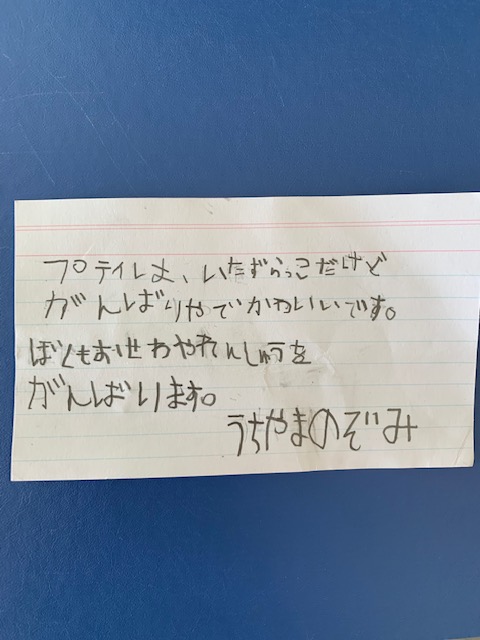 プティは、いたずらっこだけど
がんばりやでかわいいです。
ぼくもおせわやれんしゅうを
がんばります。
うちやまのぞみ